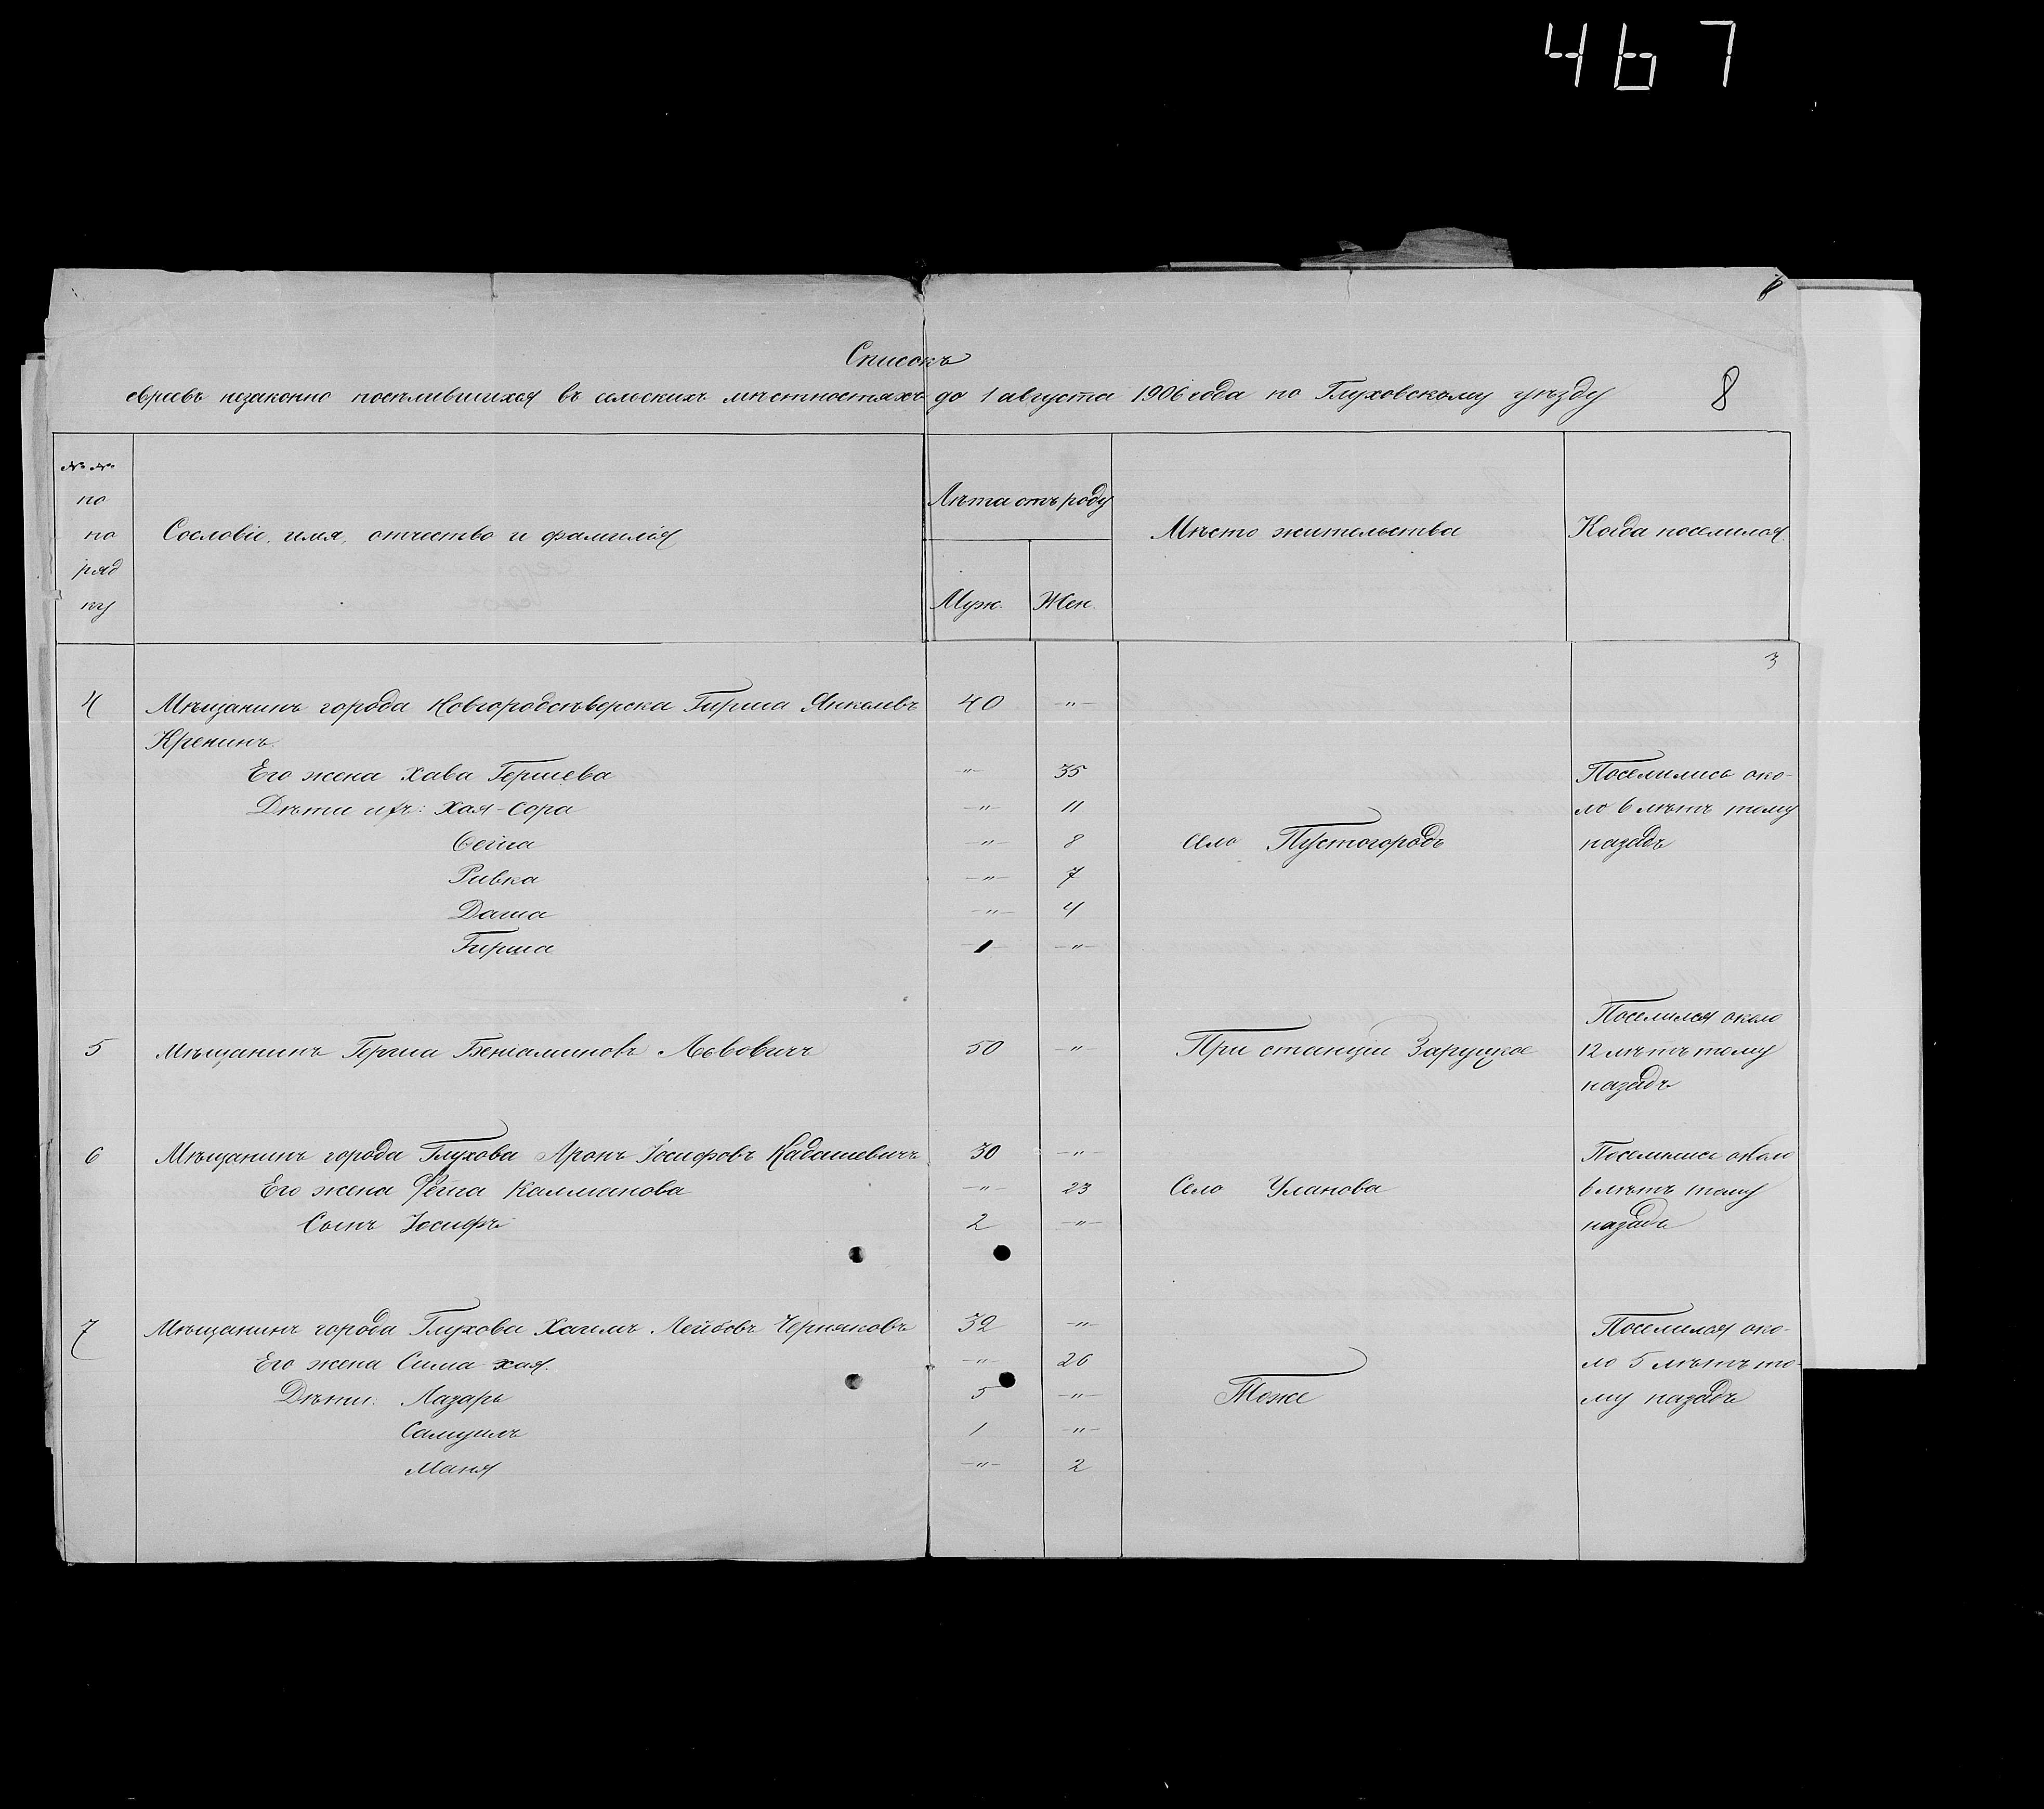 467
Списокъ
евреевъ незаконно поселившихся въ сельскихъ мѣстностяхъ до 1 августа 1906 года по Глуховскому уѣзду
8
№ №
по
по
ряд
ку
Сословіе, имя, отчество и фамилія
Лѣта отъ роду
Муж.
Жен.
Мѣсто жительства
Когда поселился
3
4 Мѣщанинъ города Новгородсѣверска Гирша Янкелевъ 40 -"-
Кренинъ.
Его жена Хава Гершева -"- 35 Поселились око-
Дѣти ихъ: Хая-Сора -"- 11 ло 6 лѣтъ тому
Сейна -"- 8 село Пустогородъ назадъ
Ривка -"- 7
Даша -"- 4
Гирша 1 -"-
Поселился около
5 Мѣщанинъ Герша Беніаминовъ Львовичъ 50 -"- При станціи Заруцкое 12 лѣтъ тому
назадъ
6 Мѣщанинъ города Глухова Аронъ Іосифовъ Кадашевичъ 30 -"- Поселились около
Его жена Рейза Калманова -"- 23 Село Уланова 6 лѣтъ тому
Сынъ Іосифъ 2 -"- назадъ
7 Мѣщанинъ города Глухова Хаимъ Лейбовъ Черняковъ 32 -"- Поселился око-
Его жена Сима-Хая. -"- 26 ло 5 лѣтъ то-
Дѣти: Лазарь 5 -"- Тоже му назадъ
Самуилъ 1 -"-
Маня -"- 2